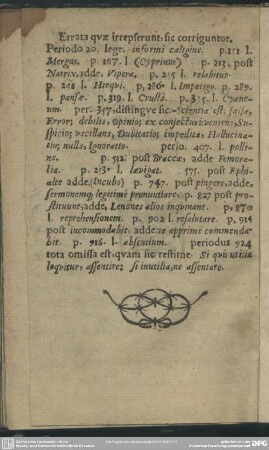 Errata quæ irrepserunt, sic corriguntor.
Periodo 20. lege, informi caligine. p.151 l.
Mergus. p. 167. l (Cyprinus) p. 213. post
Natrix, adde, Vipera, p. 215 l. relabitur.
p. 248 l. Hirqui, p. 286 l. Impetigo. p. 289.
l. pansæ. p. 319. l. Crustâ. p. 335. l. Cyane-
um. per. 357. distingve sic: Scientia est, falsa,
Error; debilis, Opinio; ex conjecturis veniens, Su-
spicio; vacillans, Dubitatio; impedita, Hallucina-
tio; nulla, Ignoratio. perio. 407. l. polli-
ne. p. 512. post Braccæ, adde Femora-
lia. p. l. lævigat. 571. post Ephi-
alte adde, (Incubo) p. 747. post pingere, adde,
sermonemq; legitimè pronuntiare. p. 827 post pro-
stituunt, adde, Lenones alios inquinant. p. 870
l. reprehensionem. p. 902 l. resalutare. p. 914
post incommodabit, adde, ne apprimè commenda-
bit. p. 916. l. absentium. periodus 924
tota omissa est, quam sic restitue. Si quis utilia
loquitur, assentire; si inutilia, ne assentare.